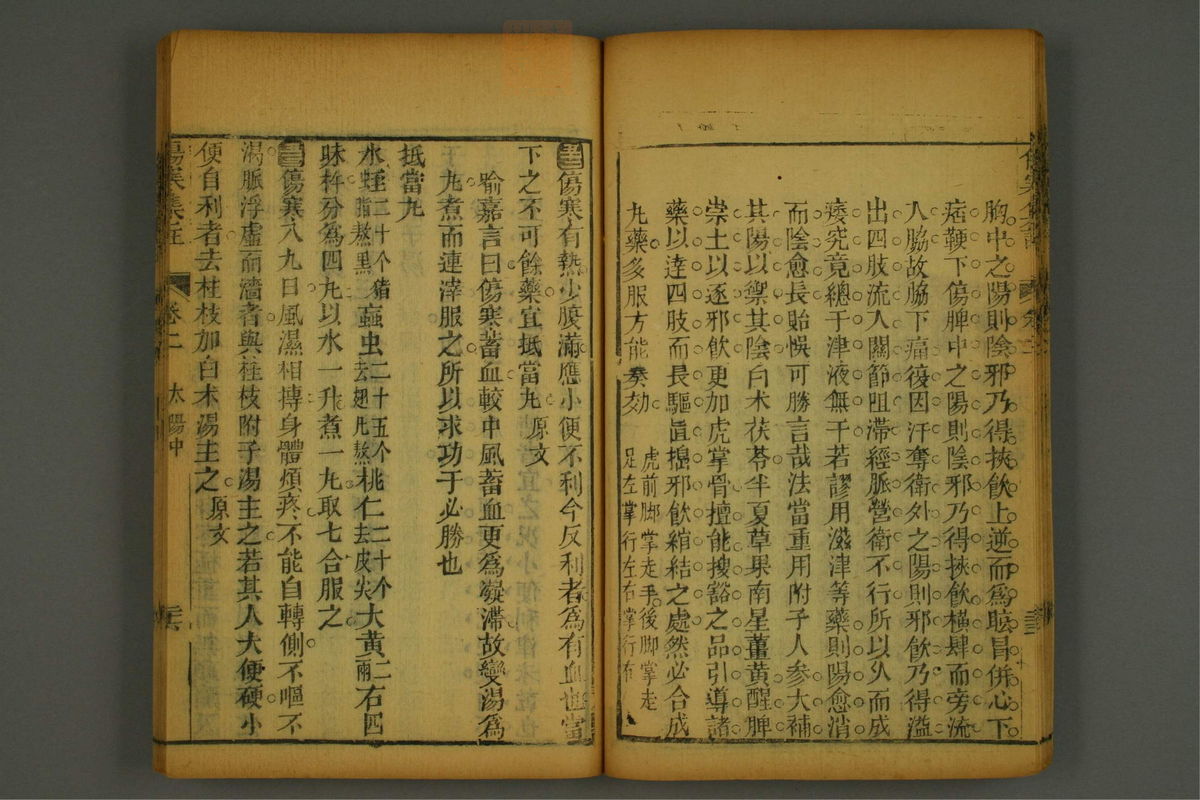 胸中之陽則陰邪乃得挾飲上逆而爲眩冒併心下
痞鞕下傷脾中之陽則陰邪乃得挾飲橫肆而旁流
入脇故脇下痛後因汗奪衛外之陽則邪飲乃得溢
出四肢流入關節阻滯經脈營衛不行所以久而成
痿究竟總于津液無干若謬用滋津等藥則陽愈消
而陰愈長貽悞可勝言哉法當重用附子人參大補
其陽以禦其陰白术茯苓半夏草果南星薑黃醒脾
崇土以逐邪飲更加虎掌骨擅能搜豁之品引導諸
藥以達四肢而長驅直搗邪飲綰結之處然必合成
丸藥多服方能奏効 虎前脚掌走手後脚掌走
足左掌行左右掌行右
傷寒有熱少腹滿應小便不利今反利者爲有血也當
下之不可餘藥宜抵當丸 原文
喻嘉言曰傷寒蓄血較中風蓄血更爲凝滯故變湯爲
丸煮而連滓服之所以求功于必勝也
抵當丸
水蛭二十个猪脂熬黑 䖟虫二十五个去翅足熬 桃仁二十个去皮尖 大黃二兩 右四
味杵分爲四丸以水一升煮一丸取七合服之
傷寒八九日風濕相搏身體煩疼不能自轉側不嘔不
渴脈浮虛而濇者與桂枝附子湯主之若其人大便硬小
便自利者去桂枝加白术湯主之 原文
傷寒集註 卷二 太陽中